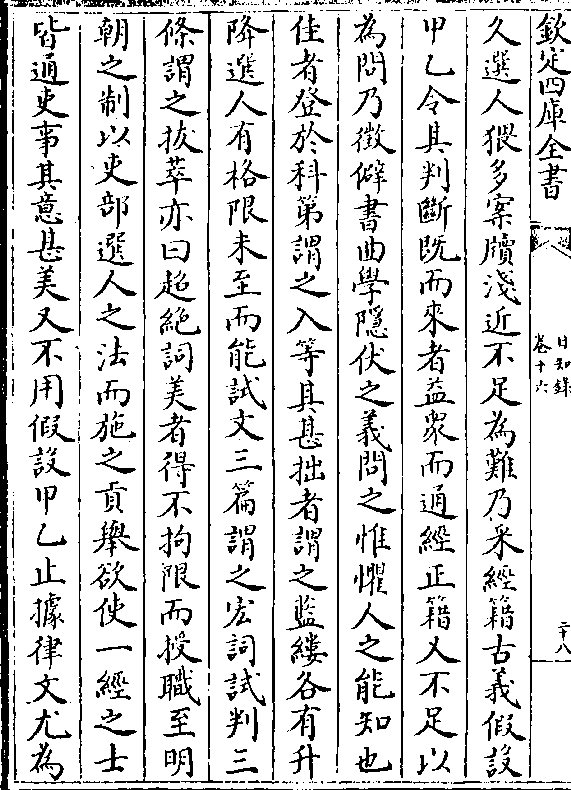 欽定四庫全書
日知錄
卷十六
二十八
久選人猥多案牘淺近不足為難乃采經籍古義假設
甲乙令其判斷既而來者益眾而通經正籍又不足以
為問乃徵僻書曲學隱伏之義問之惟懼人之能知也
佳者登於科第謂之入等其甚拙者謂之藍縷各有升
降選人有格限未至而能試文三篇謂之宏詞試判三
條謂之拔萃亦曰超絶詞美者得不拘限而授職至明
朝之制以吏部選人之法而施之貢舉欲使一經之士
皆通吏事其意甚美又不用假設甲乙止據律文尤為